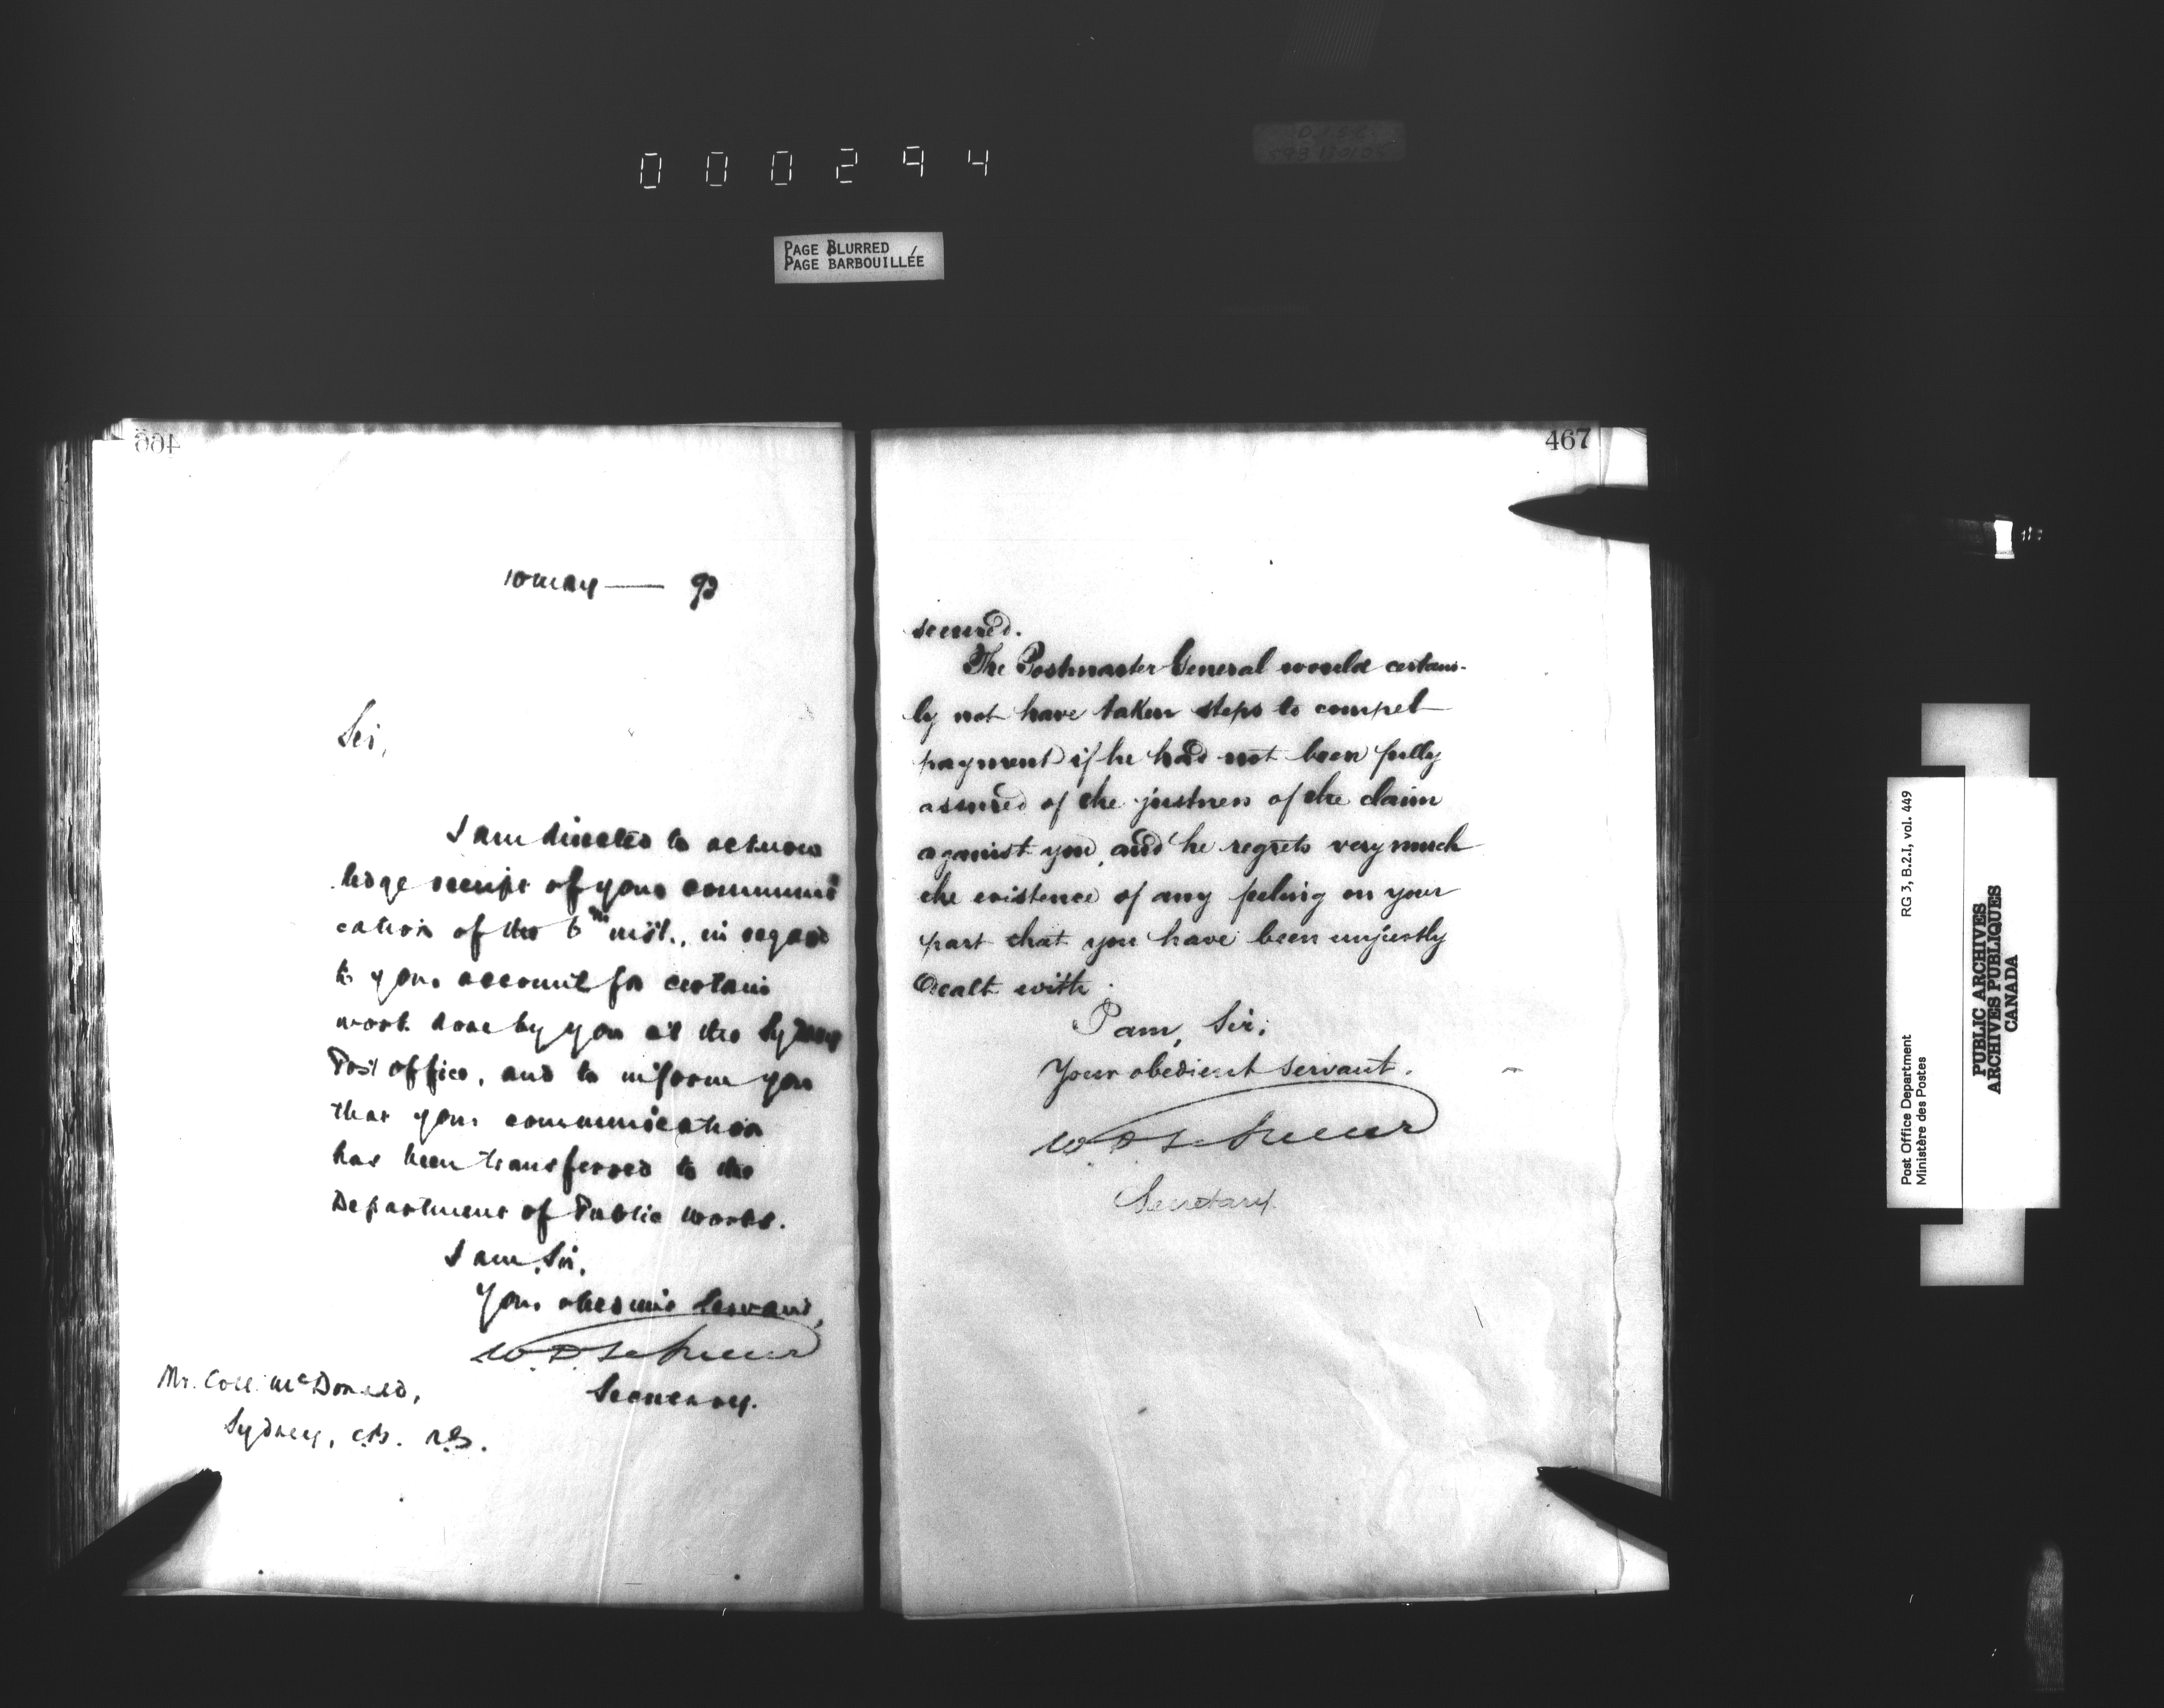 000294
PAGE BLURRED
PAGE BARBOUILLÉE
466
10 May — 93
Sir,
I am directed to acknow
ledge receipt of your communi
cation of the 6th inst., in regard
to your account for certain
work done by you at the Sydney
Post office, and to inform you
that your communication
has been transferred to the
Department of Public Works.
I am, Sir,
Your obedient Servant,
Secretary.
Mr. Coll. McDonald,
Sydney, C.B. N.S.
467
secured.
The Postmaster General would certain-
ly not have taken steps to compel
payment if he had not been fully
assured of the justness of the claim
against you, and he regrets very much
the existence of any feeling on your
part that you have been unjustly
dealt with.
I am, Sir,
Your obedient servant.
Secretary
Post Office Department
Ministère des Postes
RG 3, B.2.I, vol. 449
PUBLIC ARCHIVES
ARCHIVES PUBLIQUES
CANADA